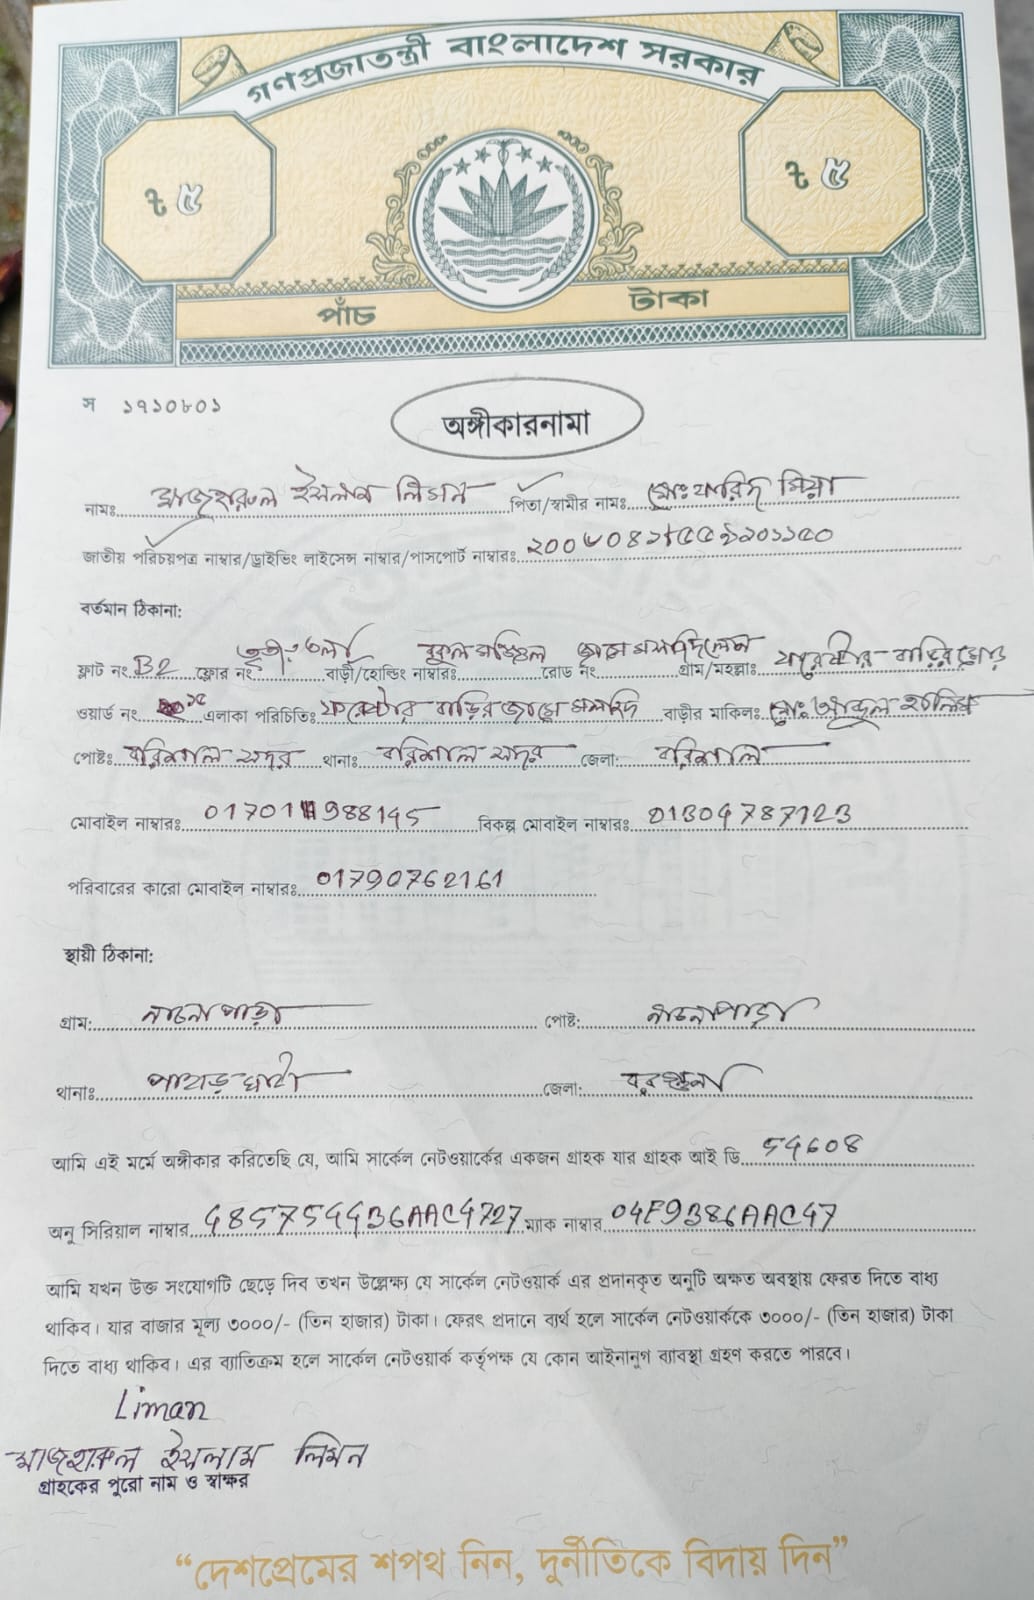 গণপ্রজাতন্ত্রী বাংলাদেশ সরকার
৳ ৫ ৳ ৫
পাঁচ টাকা
স ১৭১০৮০১
অঙ্গীকারনামা
নামঃ মাজহারুল ইসলাম লিমন পিতা/স্বামীর নামঃ মোঃ ফারিদ মিয়া
জাতীয় পরিচয়পত্র নাম্বার/ড্রাইভিং লাইসেন্স নাম্বার/পাসপোর্ট নাম্বারঃ
বর্তমান ঠিকানা:
ফ্লাট নং B2 ফ্লোর নং বাড়ী/হোল্ডিং নাম্বারঃ রোড নং গ্রাম/মহল্লাঃ
ওয়ার্ড নং এলাকা পরিচিতিঃ বাড়ীর মালিকঃ মোঃ আব্দুল
পোষ্টঃ বরিশাল সদর থানাঃ বরিশাল সদর জেলা: বরিশাল
মোবাইল নাম্বারঃ 01701988145 বিকল্প মোবাইল নাম্বারঃ 01304787123
পরিবারের কারো মোবাইল নাম্বারঃ 01790762161
স্থায়ী ঠিকানা:
গ্রাম: নাচনাপাড়া পোষ্ট: নাচনাপাড়া
থানাঃ পাথরঘাটা জেলা: বরগুনা
আমি এই মর্মে অঙ্গীকার করিতেছি যে, আমি সার্কেল নেটওয়ার্কের একজন গ্রাহক যার গ্রাহক আই ডি 54608
অনু সিরিয়াল নাম্বার 48575443B6AAC4727 ম্যাক নাম্বার 04E9386AAC47
আমি যখন উক্ত সংযোগটি ছেড়ে দিব তখন উল্লেক্ষ্য যে সার্কেল নেটওয়ার্ক এর প্রদানকৃত অনুটি অক্ষত অবস্থায় ফেরত দিতে বাধ্য
থাকিব। যার বাজার মূল্য ৩০০০/- (তিন হাজার) টাকা। ফেরৎ প্রদানে ব্যর্থ হলে সার্কেল নেটওয়ার্ককে ৩০০০/- (তিন হাজার) টাকা
দিতে বাধ্য থাকিব। এর ব্যাতিক্রম হলে সার্কেল নেটওয়ার্ক কর্তৃপক্ষ যে কোন আইনানুগ ব্যাবস্থা গ্রহণ করতে পারবে।
Liman
মাজহারুল ইসলাম লিমন
গ্রাহকের পুরো নাম ও স্বাক্ষর
“দেশপ্রেমের শপথ নিন, দুর্নীতিকে বিদায় দিন”